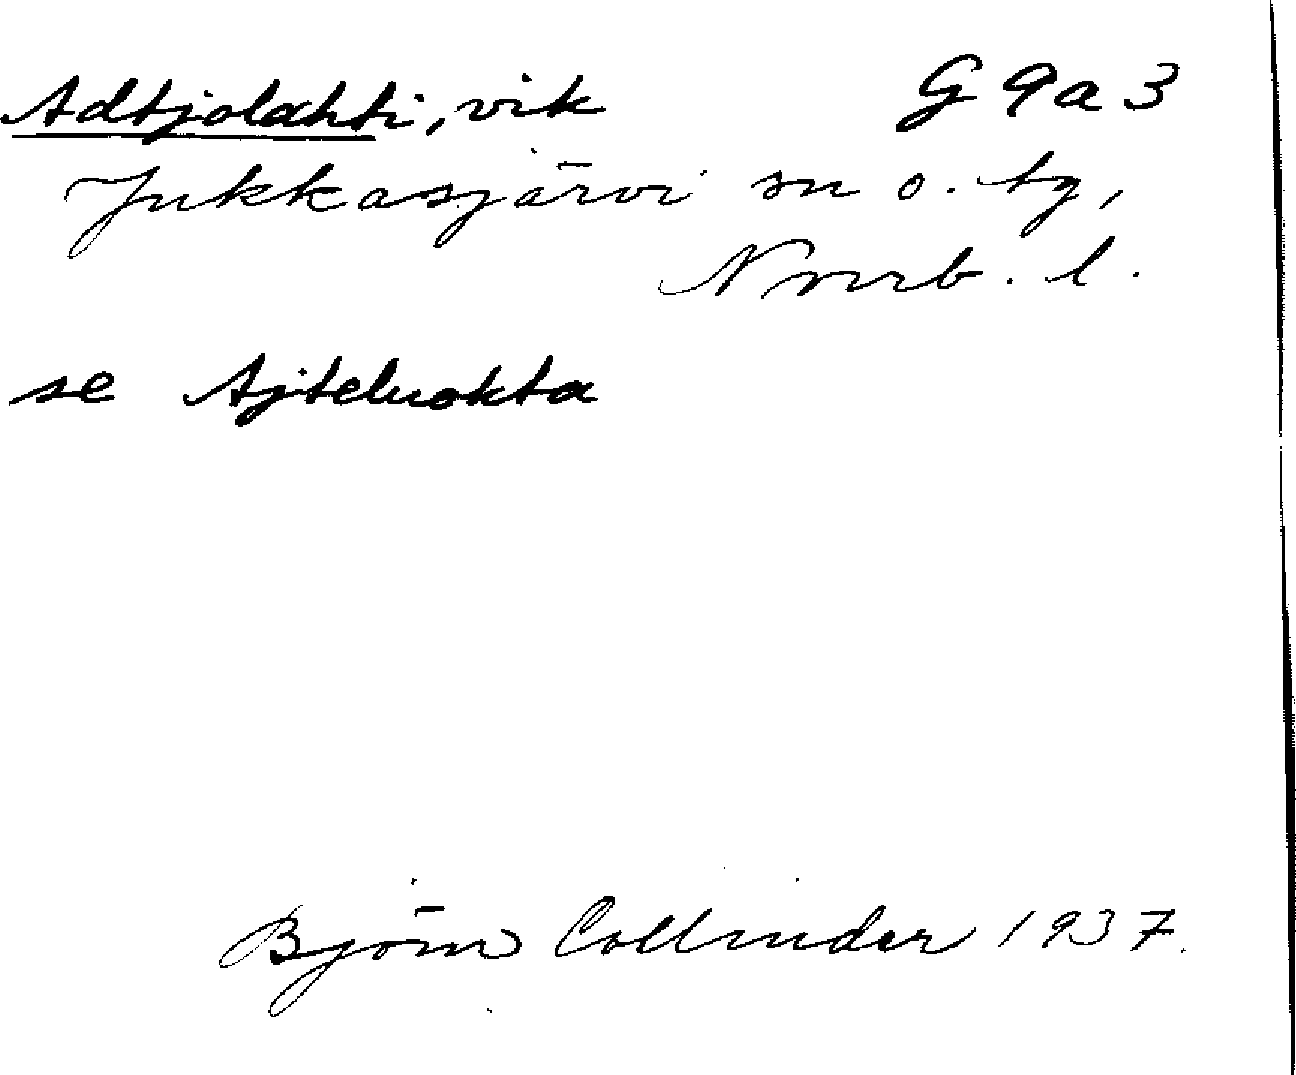 Adtjolahti, vik G 9 a 3
Jukkasjärvi sn o. tg,
Norrb. l.
se Ajteluokta
Björn Collinder 1937.